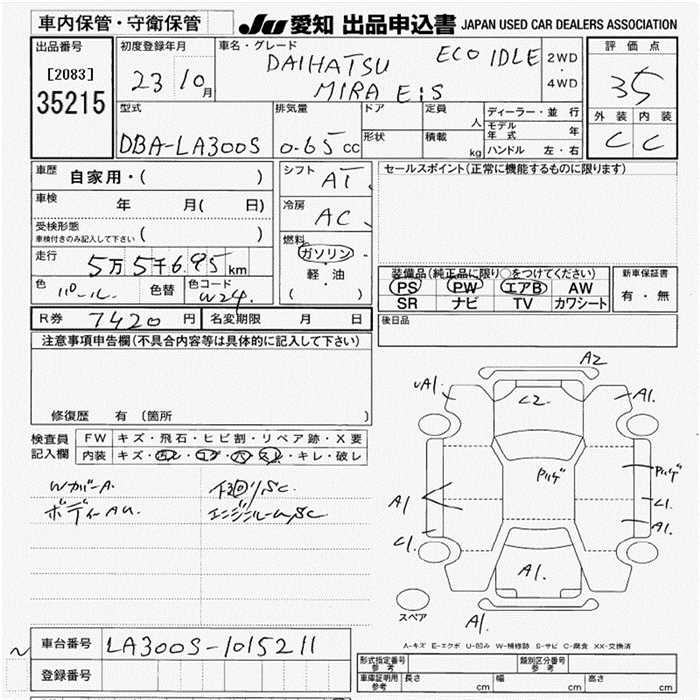 車内保管・守衛保管
JU 愛知 出品申込書 JAPAN USED CAR DEALERS ASSOCIATION
出品番号
[2083]
35215
初度登録年月
23 10月
車名・グレード
DAIHATSU ECO IDLE
MIRA E:S
2WD
・
4WD
評価点
35
外装 内装
C C
型式
DBA-LA300S
排気量
0.65cc
ドア
形状
定員 人
積載 kg
ディーラー・並行
モデル年式 年
ハンドル 左・右
車歴 自家用・( )
車検 年 月( 日)
受検形態
車検付きのみ記入して下さい ( )
走行 5万5千695km
色 パール 色替 色コード W24
シフト AT
冷房 AC
燃料
ガソリン
軽・油
( )
セールスポイント(正常に機能するものに限ります)
装備品(純正品に限り○をつけてください)
PS PW エアB AW
SR ナビ TV カワシート
新車保証書
有・無
R券 7420円 名変期限 月 日
後日品
注意事項申告欄(不具合内容等は具体的に記入して下さい)
修復歴 有 (箇所 )
検査員
記入欄
FW キズ・飛石・ヒビ割・リペア跡・X要
内装 キズ・汚レ・コゲ・穴・スレ・キレ・破レ
WカバーA.
ボディーAU.
下回リSC.
エンジンルームSC
A2
UA1.
A1.
C2
Pハゲ
Pハゲ
A1
C1.
A1.
C1.
A1.
A1.
スペア
A-キズ E-エクボ U-凹み W-補修跡 S-サビ C-腐食 XX-交換済
車台番号 LA300S-1015211
登録番号
形式指定番号
参考
類別区分番号
参考
車庫証明用
参考
長さ cm 幅 cm 高さ cm